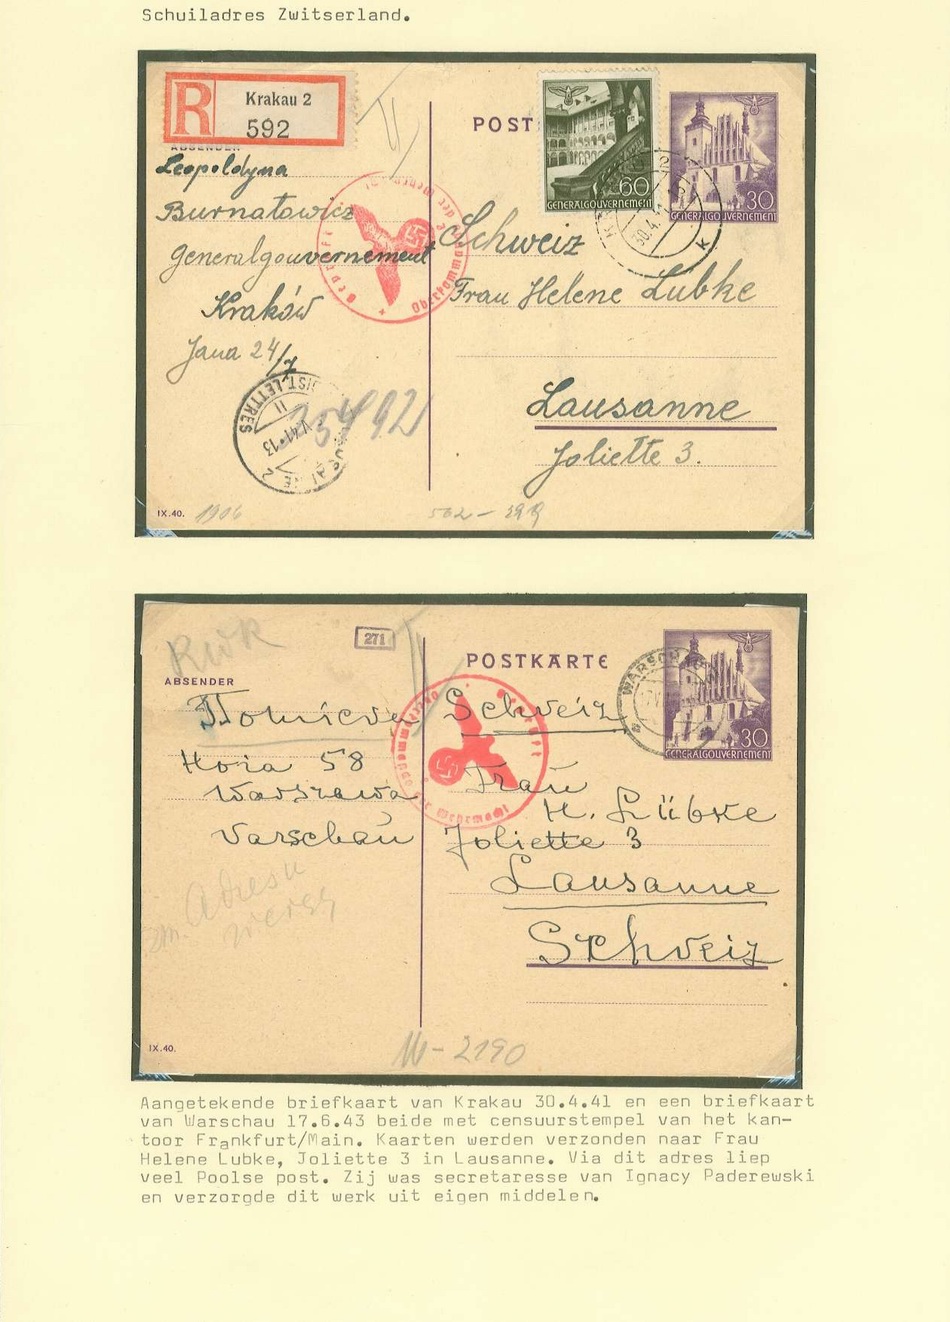 Schuiladres Zwitserland.
R
Krakau 2
592
ABSENDER
Leopoldyna
Burnatowicz
Generalgouvernement
Kraków
Jana 24/7
POST
60
GENERALGOUVERNEMENT
30
GENERALGOUVERNEMENT
30.4.41
K
Geprüft
Oberkommando der Wehrmacht
Schweiz
Frau Helene Lubke
Lausanne
Joliette 3.
LETTRES
35492
IX.40.
1906
502 - 2919
271
POSTKARTE
ABSENDER
WARSCHAU
30
GENERALGOUVERNEMENT
Geprüft
Oberkommando der Wehrmacht
Schweiz
Hoża 58
Warszawa
Varschau
Frau
H. Lübke
Joliette 3
Lausanne
Schweiz
Adresu
IX.40.
2190
Aangetekende briefkaart van Krakau 30.4.41 en een briefkaart
van Warschau 17.6.43 beide met censuurstempel van het kan-
toor Frankfurt/Main. Kaarten werden verzonden naar Frau
Helene Lubke, Joliette 3 in Lausanne. Via dit adres liep
veel Poolse post. Zij was secretaresse van Ignacy Paderewski
en verzorgde dit werk uit eigen middelen.